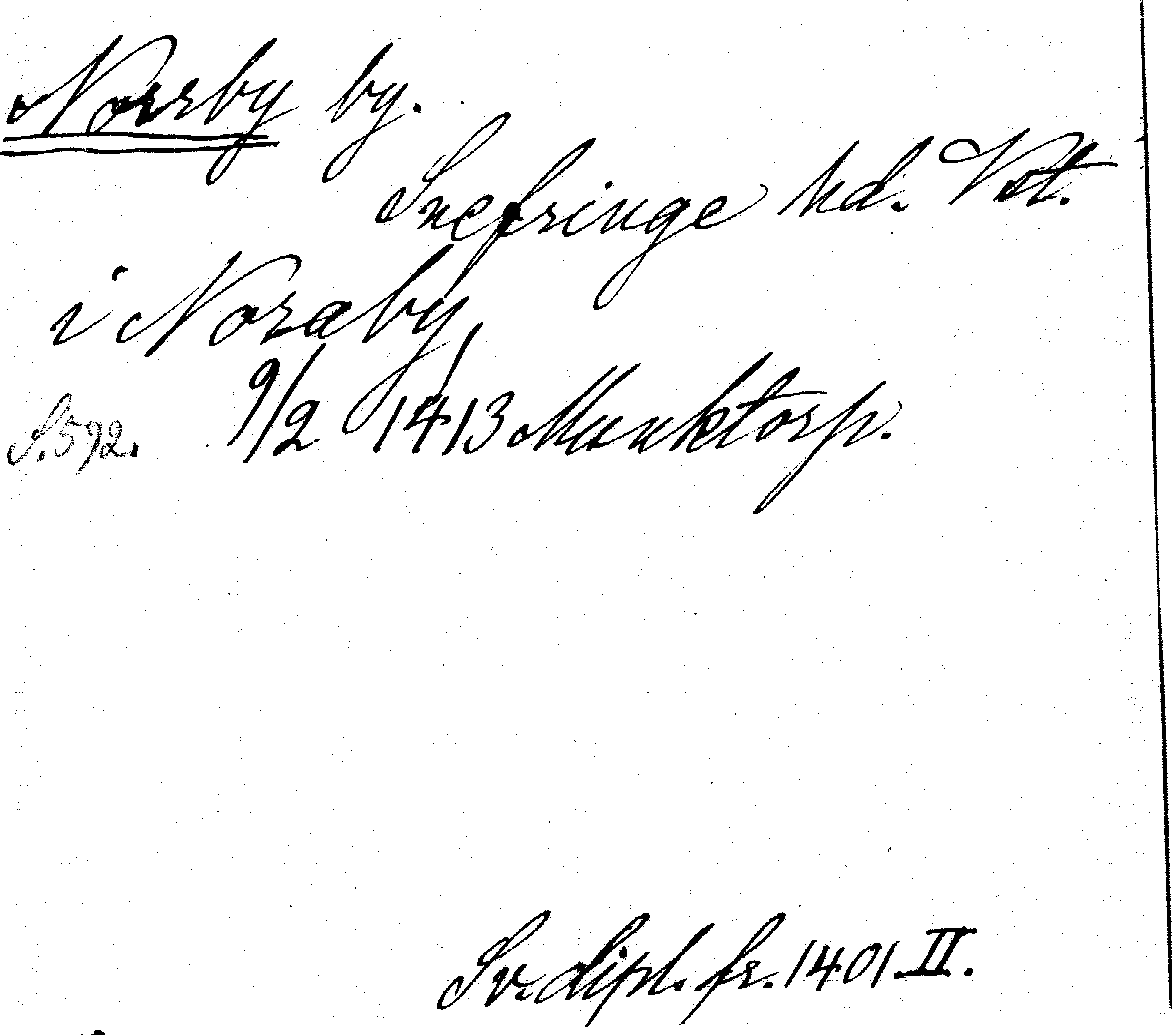 Norrby by.
Snefringe hd. Vstm.
i Noraby
S. 592. 9/2 1413 Munktorp.
Sv. dipl. fr. 1401. II.